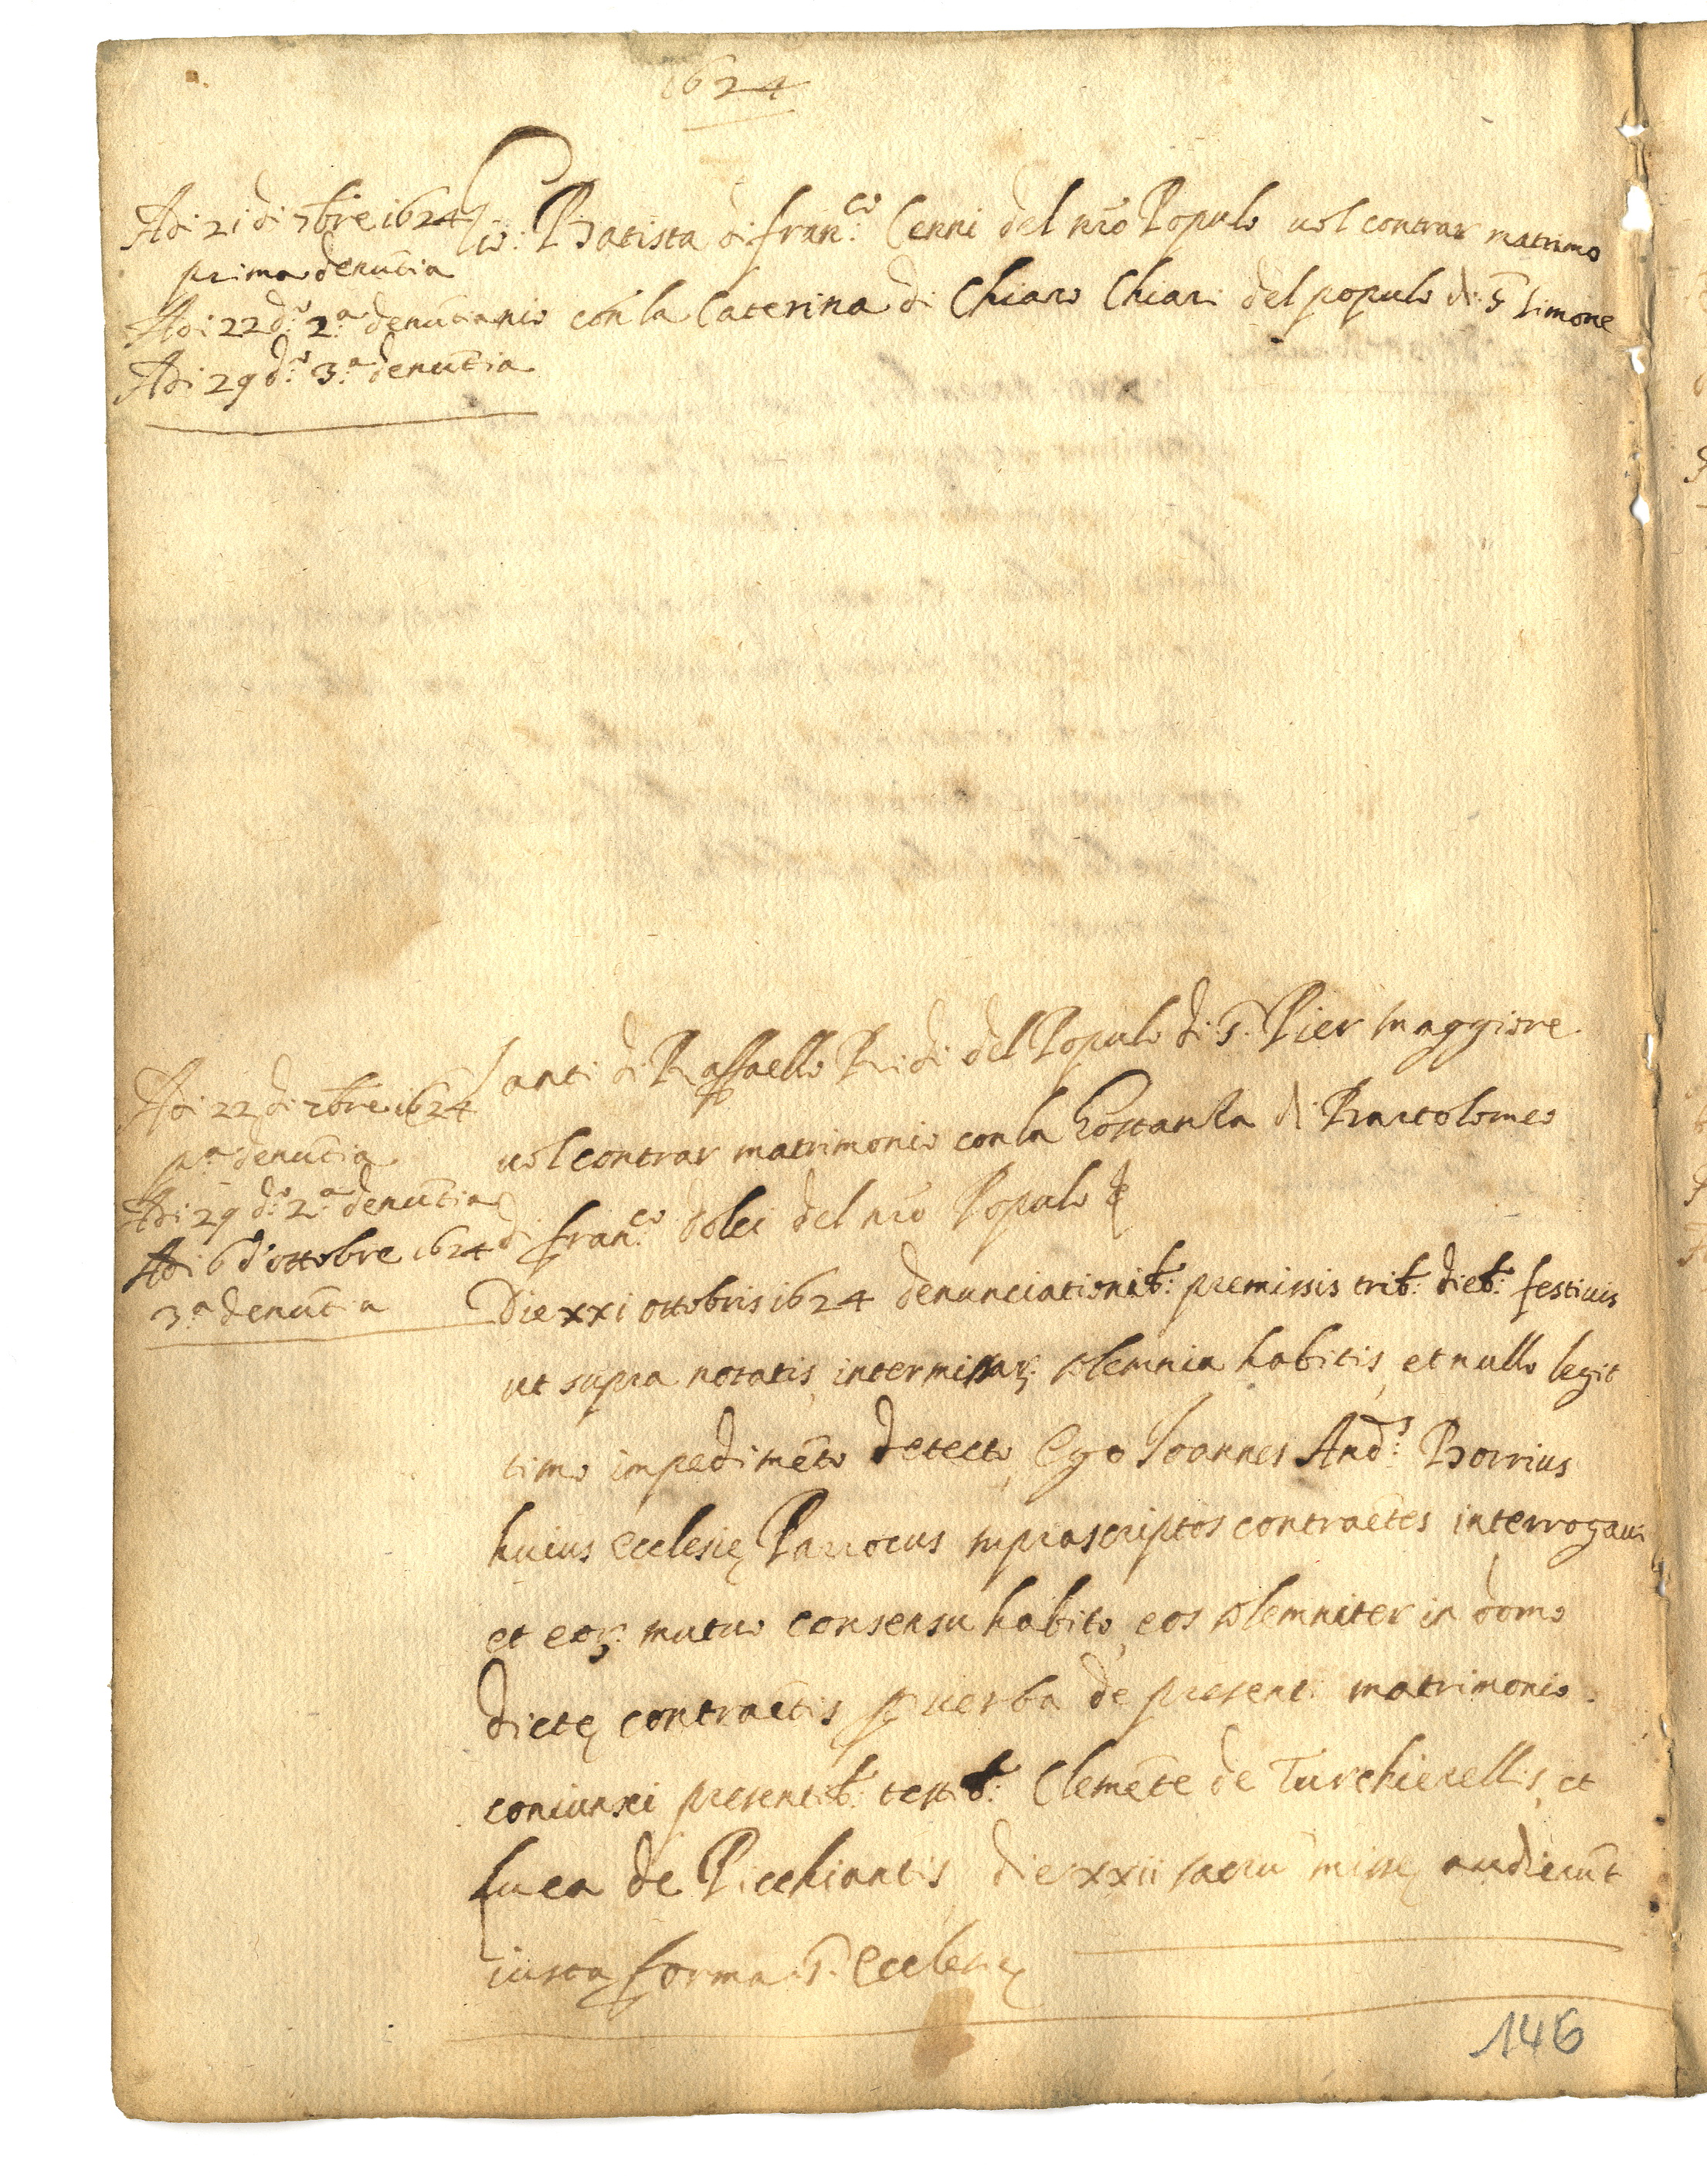 1624
Adi 21 di 7bre 1624
prima denũtia
Adi 22 d.º 2.ª denũtia
Adi 29 d.º 3.ª denũtia
Gio: Batista di Fran.co Cenni del nr̃o Populo uol contrar matrimo
nio con la Caterina di Chiaro Chiari del populo di S. Simone
Adi 22 di 7bre 1624
p.ª denũtia
Adi 29 d.º 2.ª denũtia
Adi 6 d'ottobre 1624
3.ª denũtia
Santi di Raffaello Ridi del Populo di S. Pier Maggiore
uol contrar matrimonio con la Costanza di Bartolomeo
di Fran.co Dolci del nr̃o Populo
Die xxi ottobris 1624 denunciationib: premissis trib: dieb: festiuis
ut supra notatis, inter missaꝝ solemnia habitis, et nullo legit
timo impedimẽto detecto, Ego Joannes And.s Borrius
huius ecclesię Parrocus suprascriptos contraẽtes interrogaui
et eoꝝ mutuo consensu habito, eos solemniter in domo
dictę contraẽtis ꝑ uerba de presenti matrimonio
coniunxi presentib: testib: Clemẽte de Turchierellis, et
Luca de Picchiantis, die xxii sacrũ missę audierũt
iusta forma S. Ecclesię
146